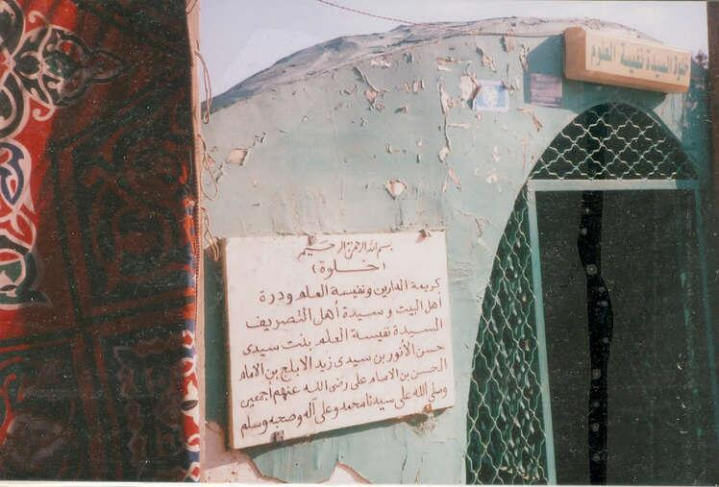 خلوة السيدة نفيسة العلوم
بسم الله الرحمن الرحيم
(خلوة)
كريمة الدارين ونفيسة العلم ودرة
أهل البيت وسيدة أهل التصريف
السيدة نفيسة العلم بنت سيدى
حسن الأنور بن سيدى زيد الابلج بن الامام
الحسن بن الامام على رضى الله عنهم أجمعين
وصلى الله على سيدنا محمد وعلى آله وصحبه وسلم